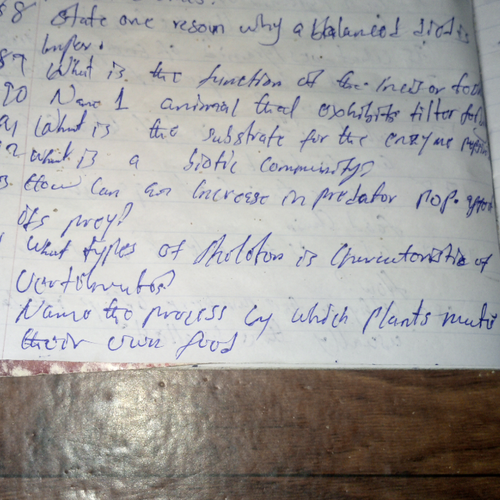 88 State one reason why a balanced diet is
Imper.
89 What is the function of the incisor teeth
90 Name 1 animal that exhibits filter
91 What is the substrate for the enzyme
92 What is a biotic community?
93. How can an increase in predator pop. affect
its prey?
What types of is characteristic of
Name the process by which plants make
their own food